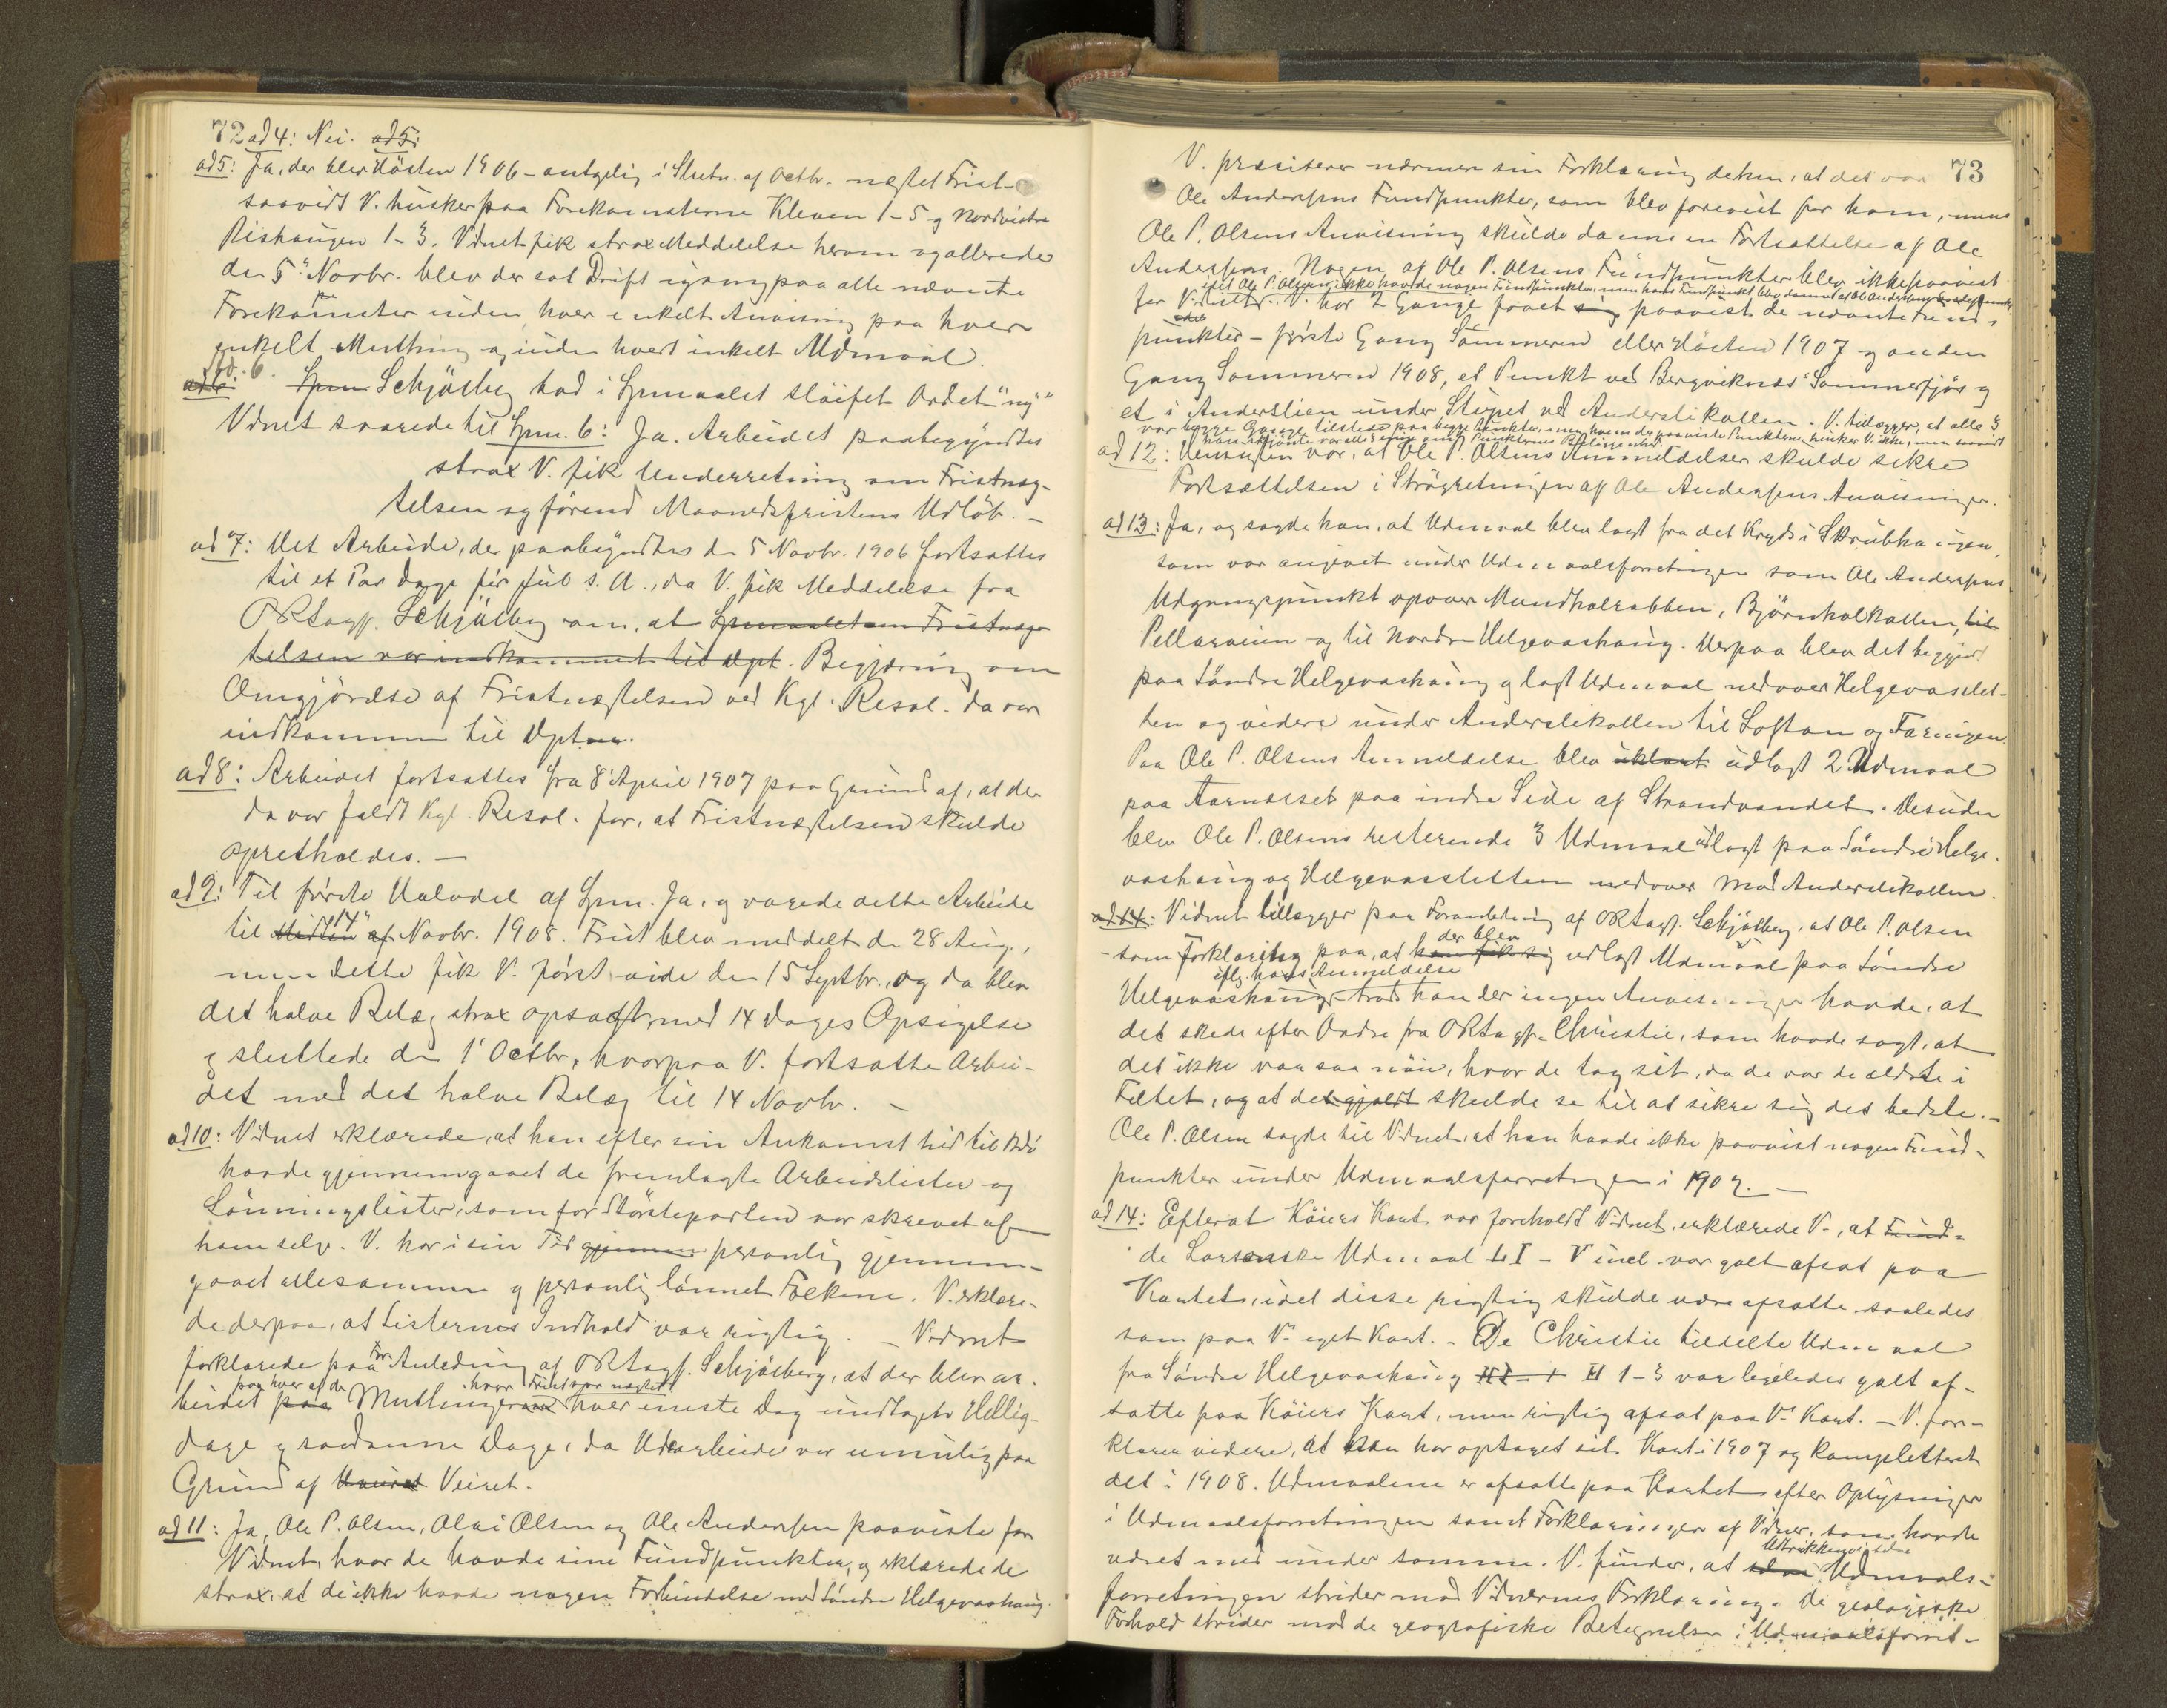 72 ad 4: Nei. ad 5:
ad 5: Ja, der blev Høsten 1906 - antagelig i Slutn. af Octbr. nægtet Frist -
saavidt V. husker paa Forekomsterne Kleven 1-5 og Nordvestre
Rishaugen 1-3. Vidnet fik strax Meddelelse herom og allerede
den 5' Novbr. blev der sat Drift igang paa alle nævnte
Forekomster inden hver enkelt Anvisning paa hver
enkelt Muthing og inden hvert enkelt Udmaal.
ad 6: Spm Schjølberg had i Spmaalet sløifet Ordet "ny"
Vidnet svarede til Spm. 6: Ja. Arbeidet paabegyndtes
strax V. fik Underretning om Fristnæg-
telsen og førend Maanedsfristens Udløb. -
ad 7: Det Arbeide, der paabegyndtes den 5 Novbr. 1906 fortsattes
til et Par Dage før Jul s. A., da V. fik Meddelelse fra
ORsagf. Schjølberg om, at Spmaalet om Fristnæg
telsen var indkommet til Dept. Begjæring om
Omgjørelse af Fristnægtelsen ved Kgl. Resol. da var
indkommen til Dept.
ad 8: Arbeidet fortsattes fra 8' April 1907 paa Grund af, at der
da var faldt Kgl. Resol. for, at Fristnægtelsen skulde
opretholdes. -
ad 9: Til første Halvdel af Spm. Ja, og varede dette Arbeide
til Midten af 14" Novbr. 1908. Frist blev meddelt den 28 Aug.,
men dette fik V. først vide den 15 Septbr., og da blev
det halve Belæg strax opsagt med 14 Dages Opsigelse
og sluttede den 1' Octbr., hvorpaa V. fortsatte Arbei-
det med det halve Belæg til 14 Novbr. -
ad 10: Vidnet erklærede, at han efter sin Ankomst hid til Bdø
havde gjennemgaaet de fremlagte Arbeidslister og
Lønningslister, som for Størsteparten var skrevet af
ham selv. V. har i sin Tid gjennem personlig gjennem-
gaaet allesammen og personlig lønnet Folkene. V. erklære-
de derpaa, at Listernes Indhold var rigtig. - Vidnet
forklarede paa For Anledning af ORsagf. Schjølberg, at der blev ar-
paa hver af de hvor Frist var nægtet
beidet paa Muthinger hver eneste Dag undtagen Hellig-
dage og saadanne Dage, da Udearbeide var umulig paa
Grund af Veiret.
ad 11: Ja, Ole P. Olsen, Olai Olsen og Ole Andersen paaviste for
Vidnet, hvor de havde sine Fundpunkter, og erklærede de
strax, at de ikke havde nogen Forbindelse med Søndre Helgevashaug.
73
V. præsiterer nærmere sin Forklaring derhen, at det var
Ole Andersens Fundpunkter, som blev forevist for ham, mens
Ole P. Olsens Anvisning skulde danne en Fortsættelse af Ole
Andersens. Nogen af Ole P. Olsens Fundpunkter blev ikke paavist
idet Ole P. Olsen ikke havde nogen Fundpunkter, men hans Fundpunkt blev dannet af Ole Andersens
for Vidnet. V. har 2 Gange faaet sig paavist de nævnte Fund-
punkter - første Gang Sommeren eller Høsten 1907 og anden
Gang Sommeren 1908, et Punkt ved Bergviknæs Sommerfjøs og
et i Anderslien under Stupet ved Anderslikollen. V. tillægger, at alle 3
var begge Gange tilstede paa begge Punkter, men hvem der paaviste Punkterne husker V. ikke, men saavidt
han skjønte var alle enige om Punkternes Beliggenhed.
ad 12: Hensigten var, at Ole P. Olsens Anmeldelser skulde sikre
Fortsættelsen i Strøgretningen af Ole Andersens Anvisninger.
ad 13: Ja, og sagde han, at Udmaal blev lagt fra det Kryds i Skrubhaugen,
som var angivet under Udmaalsforretningen som Ole Andersens
Udgangspunkt opover Mundhalrabben, Bjørnholkollen, til
Pellaraiin og til Nordre Helgevashaug. Derpaa blev det begynd
paa Søndre Helgevashaug og lagt Udmaal nedover Helgevasslet-
ten og videre under Anderslikollen til Loftan og Faringen.
Paa Ole P. Olsens Anmeldelse blev udlagt 2 Udmaal
paa Aarnæset paa indre Side af Strandvandet. Desuden
blev Ole P. Olsens resterende 3 Udmaal udlagt paa Søndre Helge-
vashaug og Helgevassletten nedover mod Anderslikollen.
ad 14: Vidnet tillægger paa Foranledning af ORsagf. Schjølberg, at Ole P. Olsen
der blev
- som Forklaring paa, at han fik sig udlagt Udmaal paa Søndre
iflg. hans Anmeldelse
Helgevashaug, trods han der ingen Anvisninger havde, at
det skede efter Ordre fra ORsagf. Christie, som havde sagt, at
det ikke var saa nøie, hvor de tog sit, da de var de ældste i
Feltet, og at det gjaldt skulde se til at sikre sig det bedste. -
Ole P. Olsen sagde til Vidnet, at han havde ikke paavist nogen Fund-
punkter under Udmaalsforretningen i 1902. -
ad 14: Efterat Køiers Kart var foreholdt Vidnet, erklærede V., at Fund-
de Larsenske Udmaal I - V incl. var galt afsat paa
Kartet, idet disse rigtig skulde være afsatte saaledes
som paa V' eget Kart. - De Christie tildelte Udmaal
fra Søndre Helgevashaug II 1-3 var ligeledes galt af-
satte paa Køiers Kart, men rigtig afsat paa V' Kart. - V. for-
klarer videre, at han har optaget sit Kart i 1907 og kompletteret
det i 1908. Udmaalene er afsatte paa Kartet efter Oplysninger
i Udmaalsforretningen samt Forklaringer af Vidner, som havde
været med under samme. V. finder, at Udmaals-
forretningen strider mod Vidnernes Forklaring. De geologiske
Forhold strider mod de geografiske Betegnelser i Udmaalsforret-